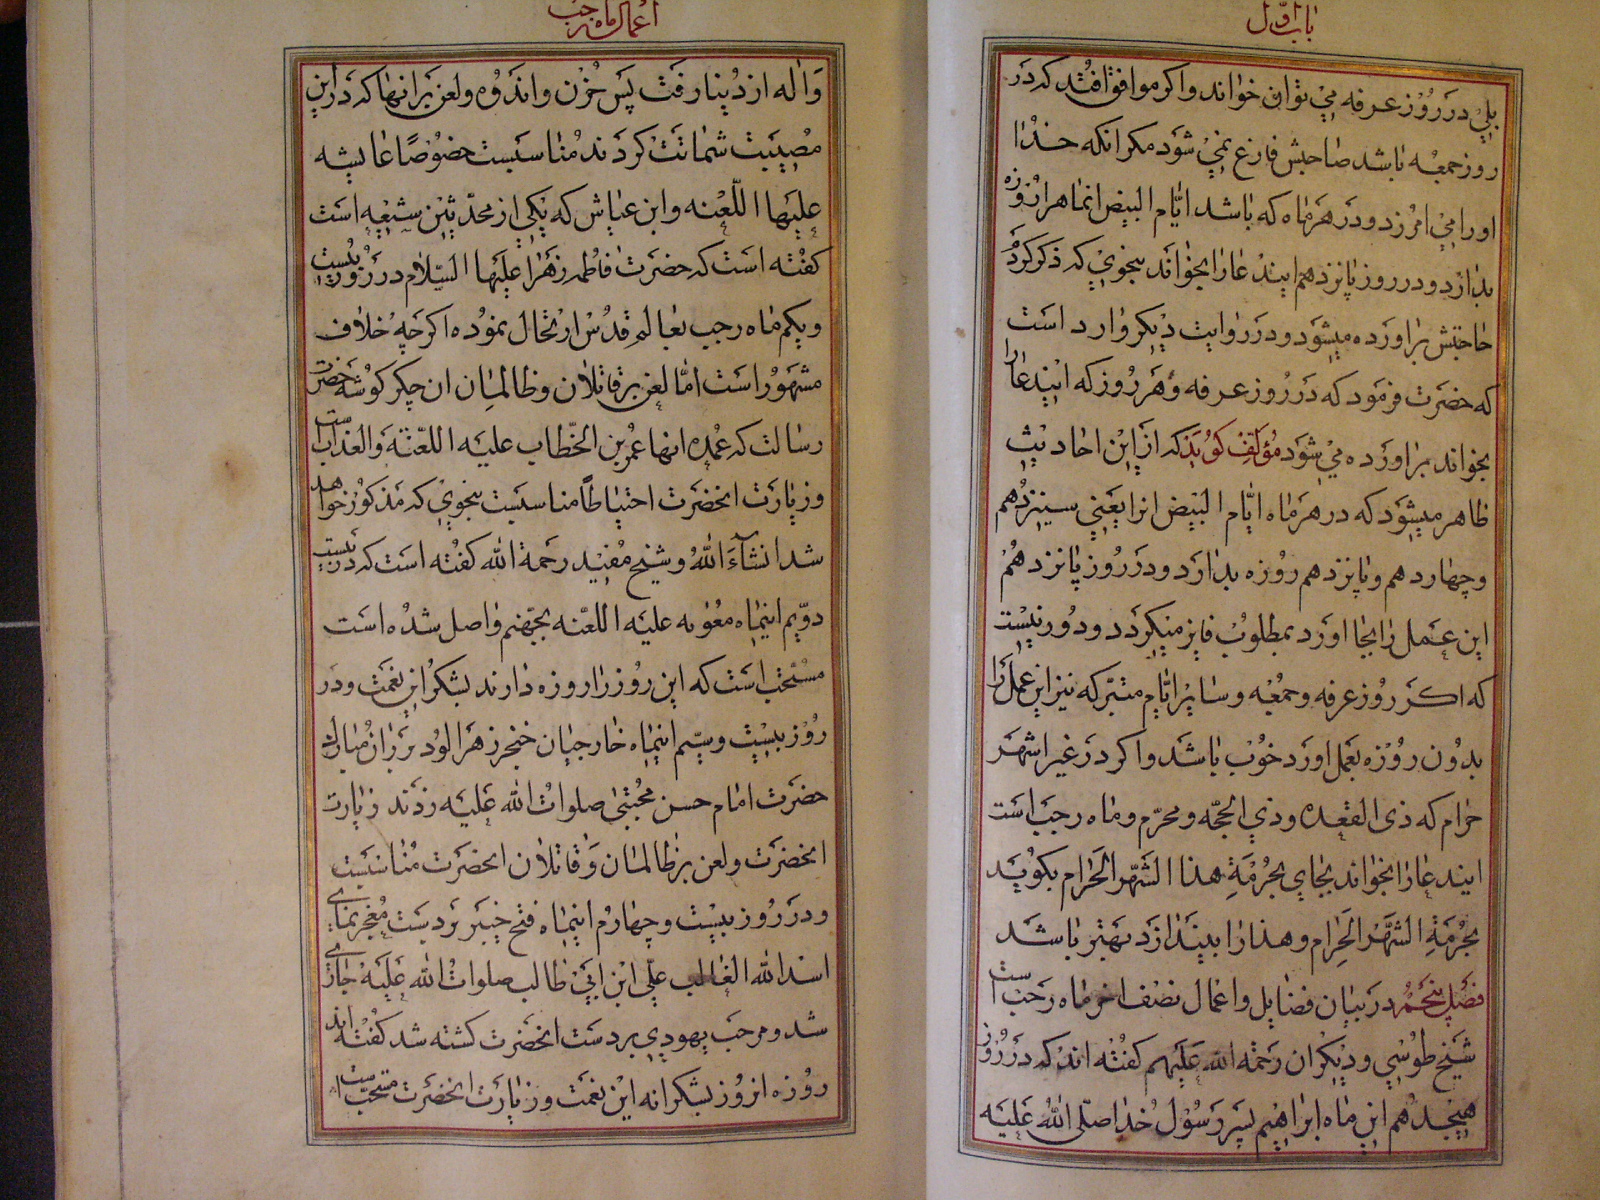 باب اوّل
بلي در روز عرفه مي تواٖن خواند واكر موافق افتد كه در
روز جمعه باشد صاحبش فارغ نميشود مكر انكه خدا
اورا مي امرزد ودر هر ماه كه باشد ايّام البيض انماه را روزه
بدارد ودر روز پانزدهم ايندعا را بخواند بنحوي كه ذكر كردم
حاجتش براورده ميشود ودر روايت ديكر وارد است
كه حضرت فرمود كه در روز عرفه وهر روز كه ايندعا را
بخواند براورده مي شود مؤلف كويد كه از اين احاديث
ظاهر ميشود كه در هر ماه ايّام البيض انرا يعني سيزدهم
وچهاردهم وپانزدهم روزه بدارد ودر روز پانزدهم
اين عمل را بجا اورد بمطلوب فايز ميكردد ودور نيست
كه اكر روز عرفه وجمعه وساير ايّام متبركه نيز اين عمل را
بدون روزه بعمل اورد خوب باشد واكر در غير اشهر
حرام كه ذي القعده وذي الحجّه ومحرّم وماه رجب است
ايندعا را بخواند بجاي بحُرْمَةِ هذا الشّهر الحَرام بكويد
بحُرْمَةِ الشّهْر الحَرامِ وهذا را بيندازد بهتر باشد
فصل پنجم در بيان فضايل واعمال نصف اخر ماه رجب است
شيخ طوسي وديكران رحمة الله عليهم كفته اند كه در روز
هيجدهم اين ماه ابراهيم پسر رسول خدا صلى الله عليه
اعمال ماه رجب
واله از دنيا رفت پس حزن واندوه ولعن بر انها كه در اين
مصيبت شماتت كردند مناسبست خصوصًا عايشه
عليها اللّعنه وابن عياش كه يكي از محدّثين شيعه است
كفته است كه حضرت فاطمه زهرا عليها السّلام در روز بيست
ويكم ماه رجب بعالم قدس ارتحال نموده اكرچه خلاف
مشهور است امّا لعن بر قاتلان وظالمان ان جكر كوشه حضرت
رسالت كه عمده انها عمر بن الخطّاب عليه اللعنة والعذاب است
وزيارت انحضرت احتياطاً مناسبست بنحوي كه مذكور خواهد
شد انشآءَ اللهُ وشيخ مفيد رحمة الله كفته است كه در بيست
دويّم اينماه معويه عليه اللعنه بجهنم واصل شده است
مستحب است كه اين روز را روزه دارند بشكر اين نعمت ودر
روز بيست وسيّم اينماه خارجيان خنجر زهر الود بر ران مبارك
حضرت امام حسن مجتبى صلوات الله عليه زدند زيارت
انحضرت ولعن بر ظالمان وقاتلان انحضرت مناسبست
ودر روز بيست وچهارم اينماه فتح خيبر بر دست معجز نماي
اسد الله الغالب علي ابن ابي طالب صلوات الله عليه جاري
شد ومرحب يهودي بر دست انحضرت كشته شد كفته اند
روزه انروز بشكرانه اين نعمت وزيارت انحضرت مستحب است